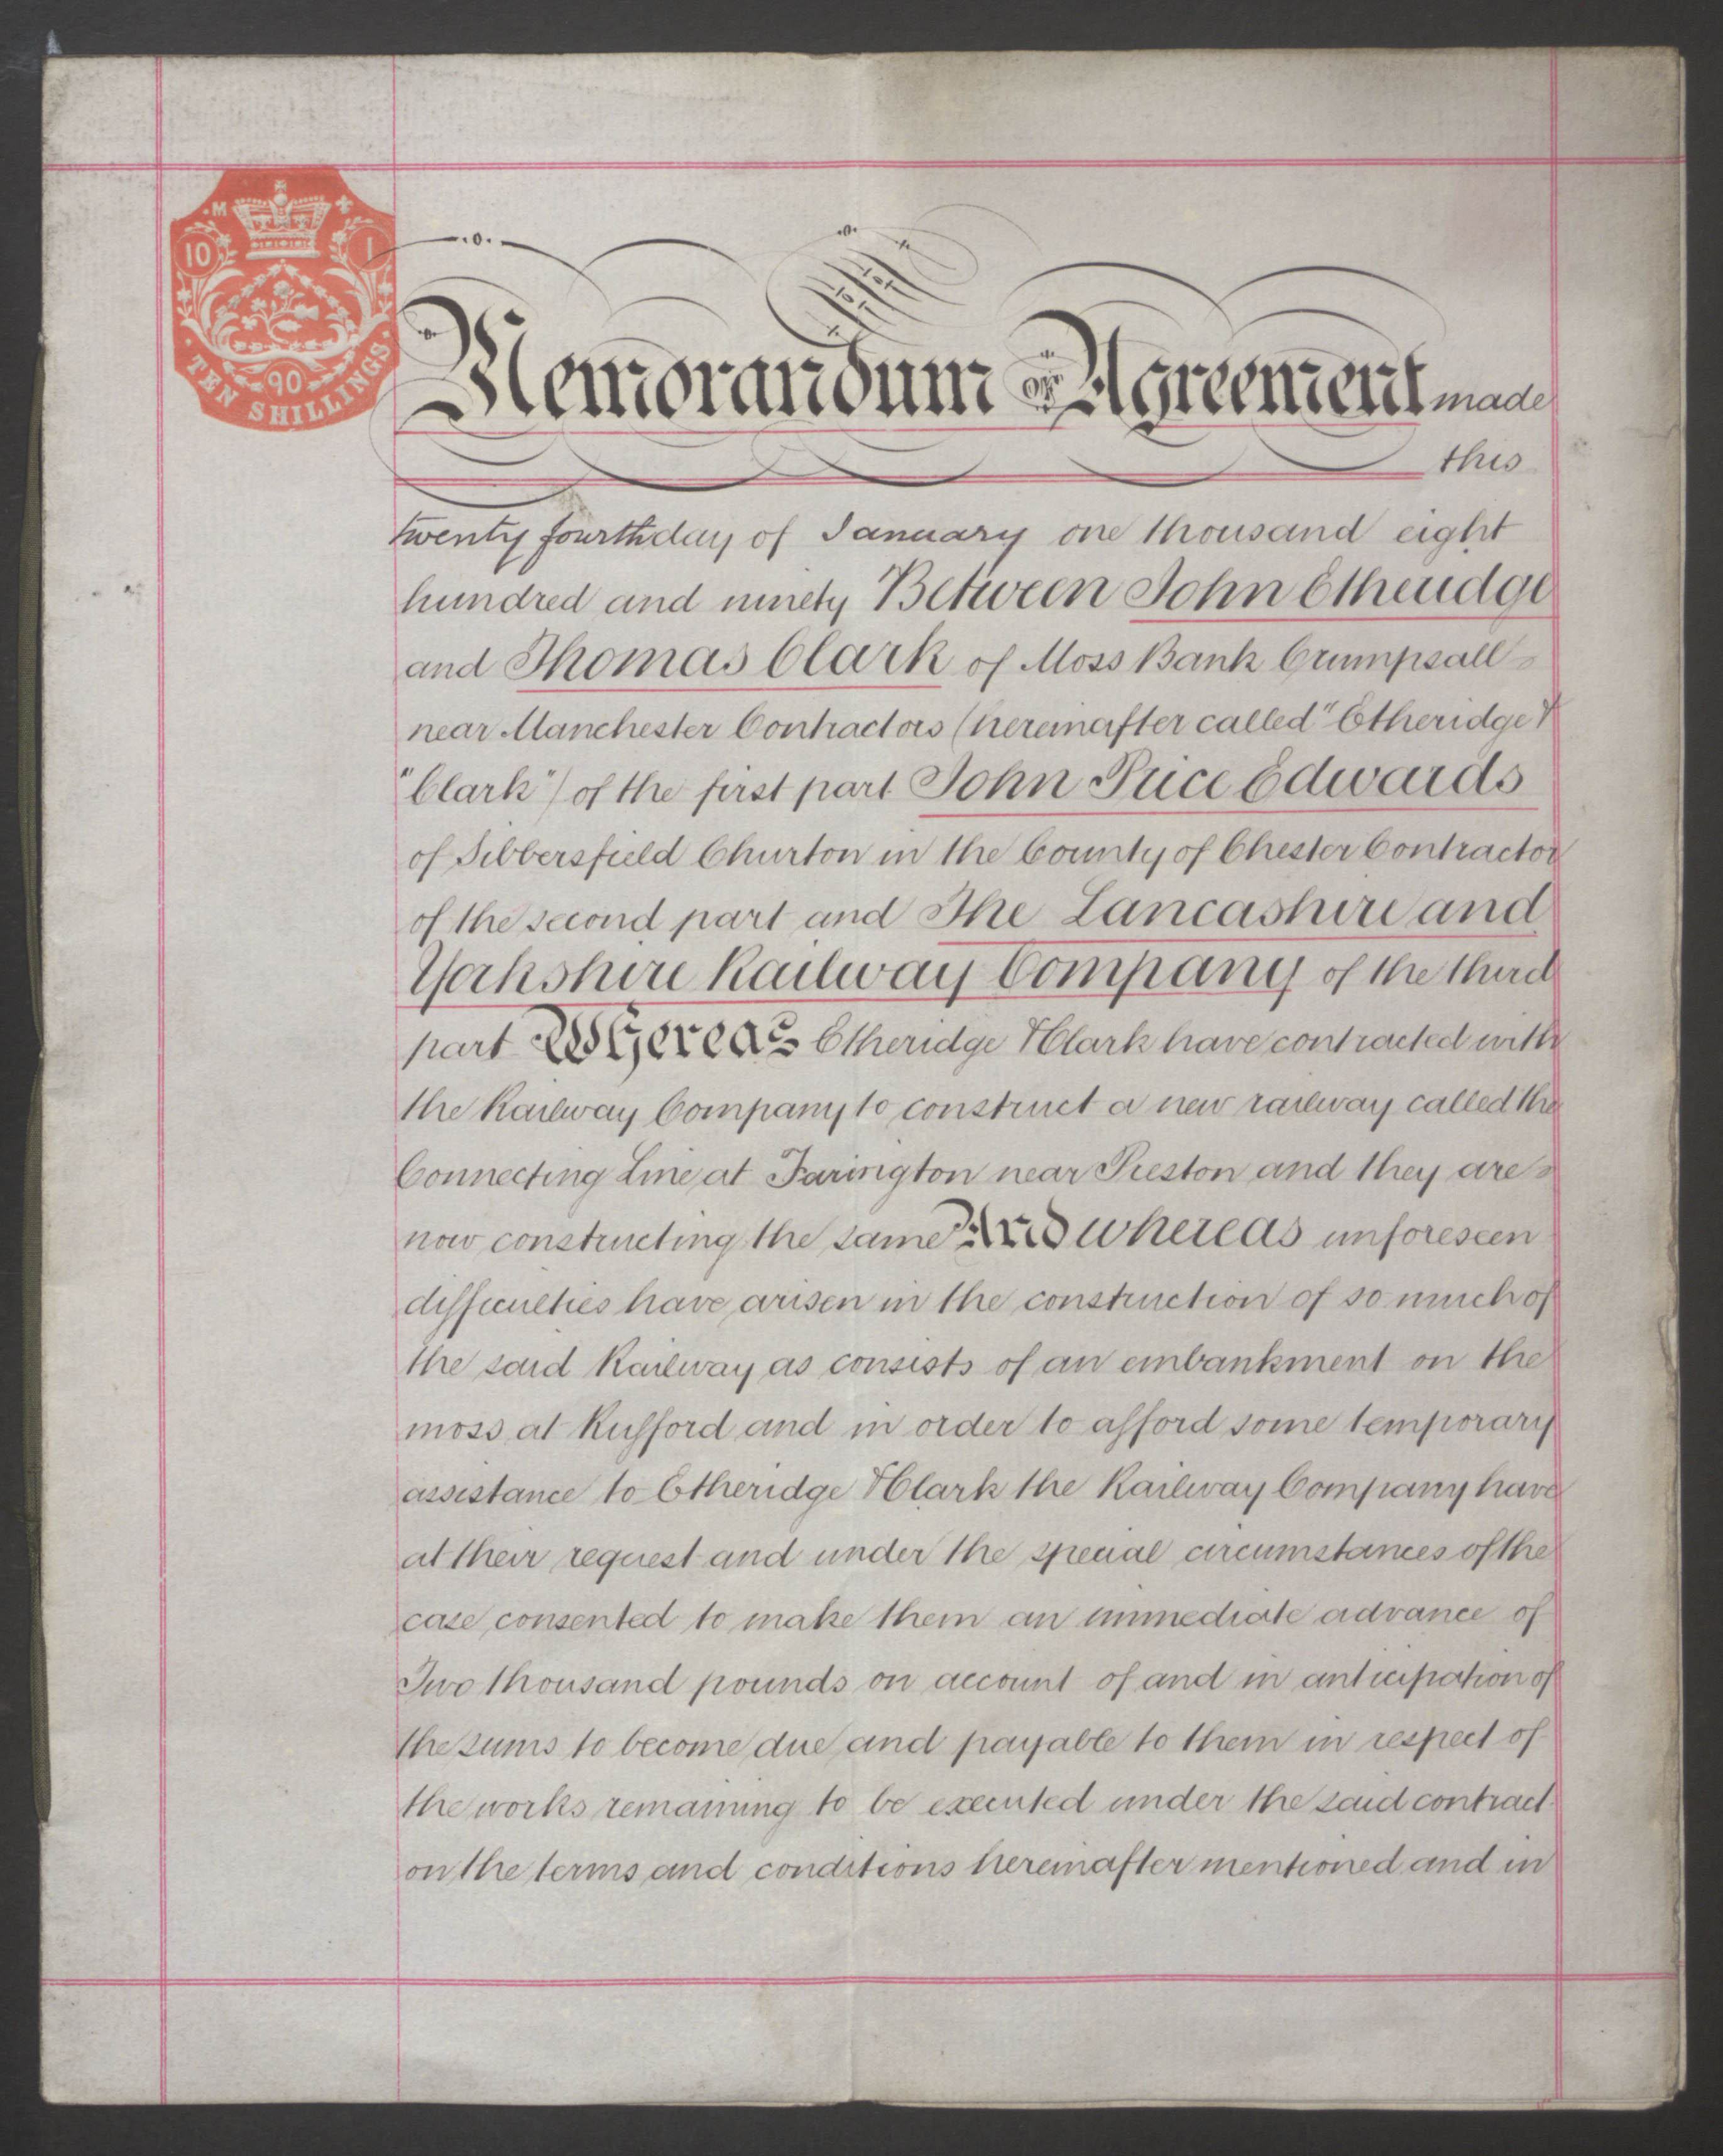 M
10 1
90
TEN SHILLINGS
Memorandum of Agreement made
this
twenty fourth day of January one thousand eight
hundred and ninety Between John Etheridge
and Thomas Clark of Moss Bank Crumpsall
near Manchester Contractors (hereinafter called "Etheridge &
"Clark") of the first part John Price Edwards
of Sibbersfield Churton in the County of Chester Contractor
of the second part and The Lancashire and
Yorkshire Railway Company of the third
part Whereas Etheridge & Clark have contracted with
the Railway Company to construct a new railway called the
Connecting Line at Farington near Preston and they are
now constructing the same And whereas unforeseen
difficulties have arisen in the construction of so much of
the said Railway as consists of an embankment on the
moss at Rufford and in order to afford some temporary
assistance to Etheridge & Clark the Railway Company have
at their request and under the special circumstances of the
case consented to make them an immediate advance of
Two thousand pounds on account of and in anticipation of
the sums to become due and payable to them in respect of
the works remaining to be executed under the said contract
on the terms and conditions hereinafter mentioned and in